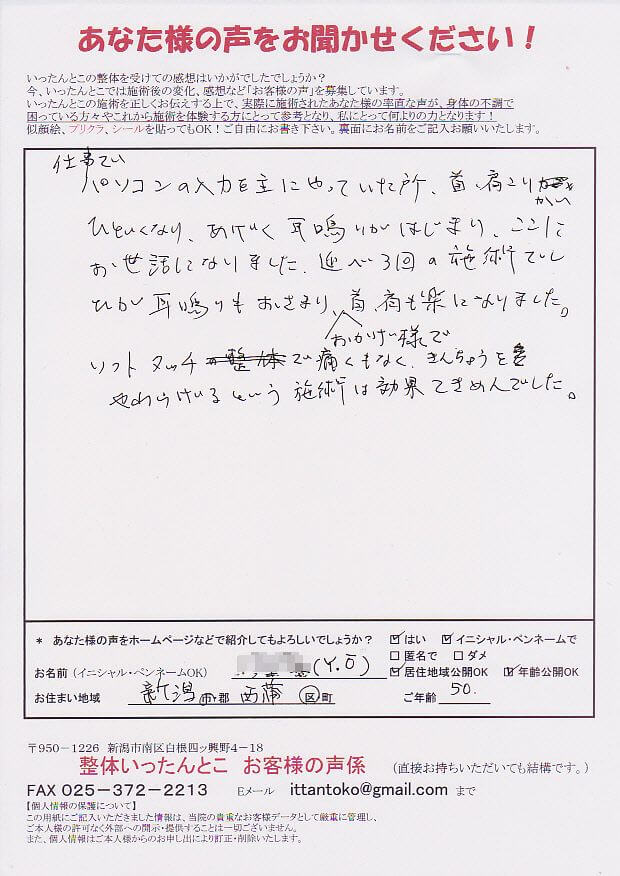 あなた様の声をお聞かせください！
いったんとこの整体を受けての感想はいかがでしたでしょうか？
今、いったんとこでは施術後の変化、感想など「お客様の声」を募集しています。
いったんとこの施術を正しくお伝えする上で、実際に施術されたあなた様の率直な声が、身体の不調で
困っている方々やこれから施術を体験する方にとって参考となり、私にとって何よりの力となります！
似顔絵、プリクラ、シールを貼ってもOK！ご自由にお書き下さい。裏面にお名前をご記入お願いいたします。
仕事で
パソコンの入力を主にやっていた所、首、肩こり
がい
ひどくなり、あげく耳鳴りがはじまり、ここに
お世話になりました。延べ3回の施術でし
たが耳鳴りもおさまり、首、肩も楽になりました。
おかげ様で
ソフトタッチ で痛くもなく、きんちょうを
やわらげるという施術は効果てきめんでした。
* あなた様の声をホームページなどで紹介してもよろしいでしょうか？ ☑はい ☑イニシャル・ペンネームで
□匿名で □ダメ
お名前（イニシャル・ペンネームOK） (Y.O) ☑居住地域公開OK ☑年齢公開OK
お住まい地域 新潟 市・郡 西蒲 区・町 ご年齢 50.
〒950－1226 新潟市南区白根四ッ興野4－18
整体いったんとこ お客様の声係 （直接お持ちいただいても結構です。）
FAX 025-372-2213 Eメール ittantoko@gmail.com まで
【個人情報の保護について】
この用紙にご記入いただきました情報は、当院の貴重なお客様データとして厳重に管理し、
ご本人様の許可なく外部への開示・提供することは一切ございません。
また、個人情報はご本人様からのお申し出により訂正・削除いたします。